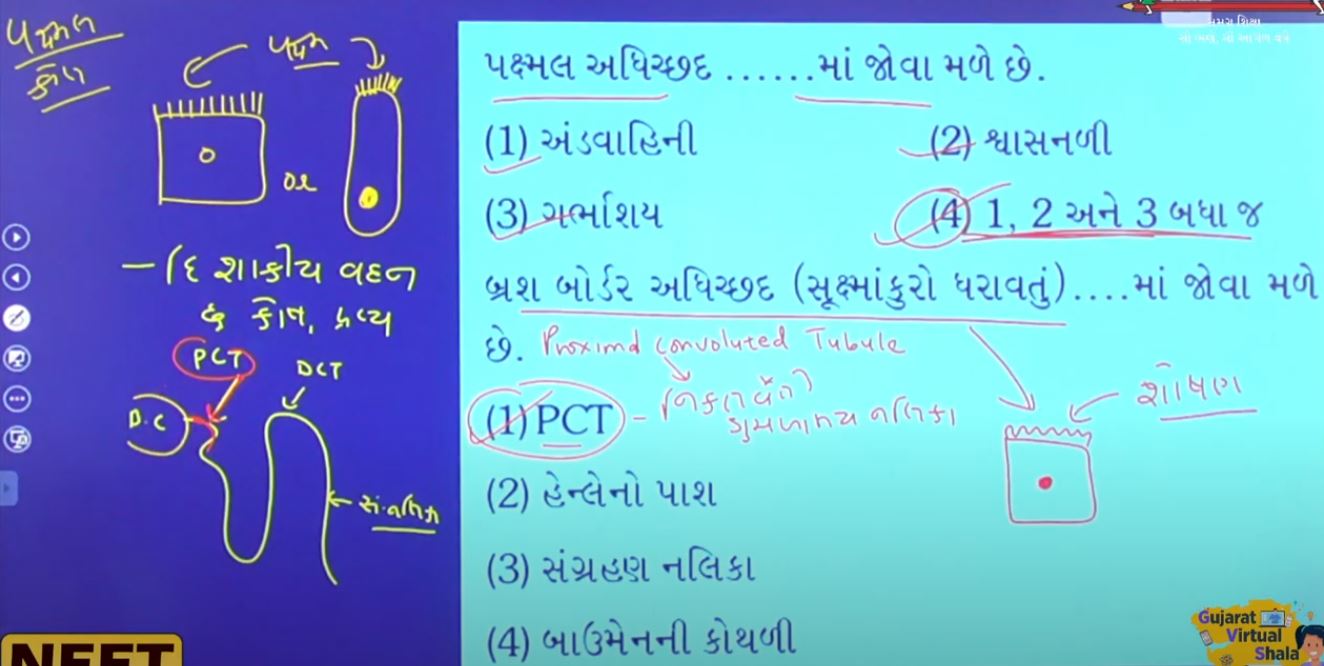 પક્ષ્મલ
કોષ
પક્ષ્મ
or
– દિશાકીય વહન
કોષ, દ્રવ્ય
PCT
DCT
B.C
સં.નલિકા
NEET
સમગ્ર શિક્ષા
સૌ ભણે, સૌ આગળ વધે
પક્ષ્મલ અધિચ્છદ ......માં જોવા મળે છે.
(1) અંડવાહિની (2) શ્વાસનળી
(3) ગર્ભાશય (4) 1, 2 અને 3 બધા જ
બ્રશ બોર્ડર અધિચ્છદ (સૂક્ષ્માંકુરો ધરાવતું)....માં જોવા મળે
છે. Proximal Convoluted Tubule
(1) PCT – નિકટવર્તી
ગુંચળામય નલિકા
શોષણ
(2) હેન્લેનો પાશ
(3) સંગ્રહણ નલિકા
(4) બાઉમેનની કોથળી
Gujarat
Virtual
Shala